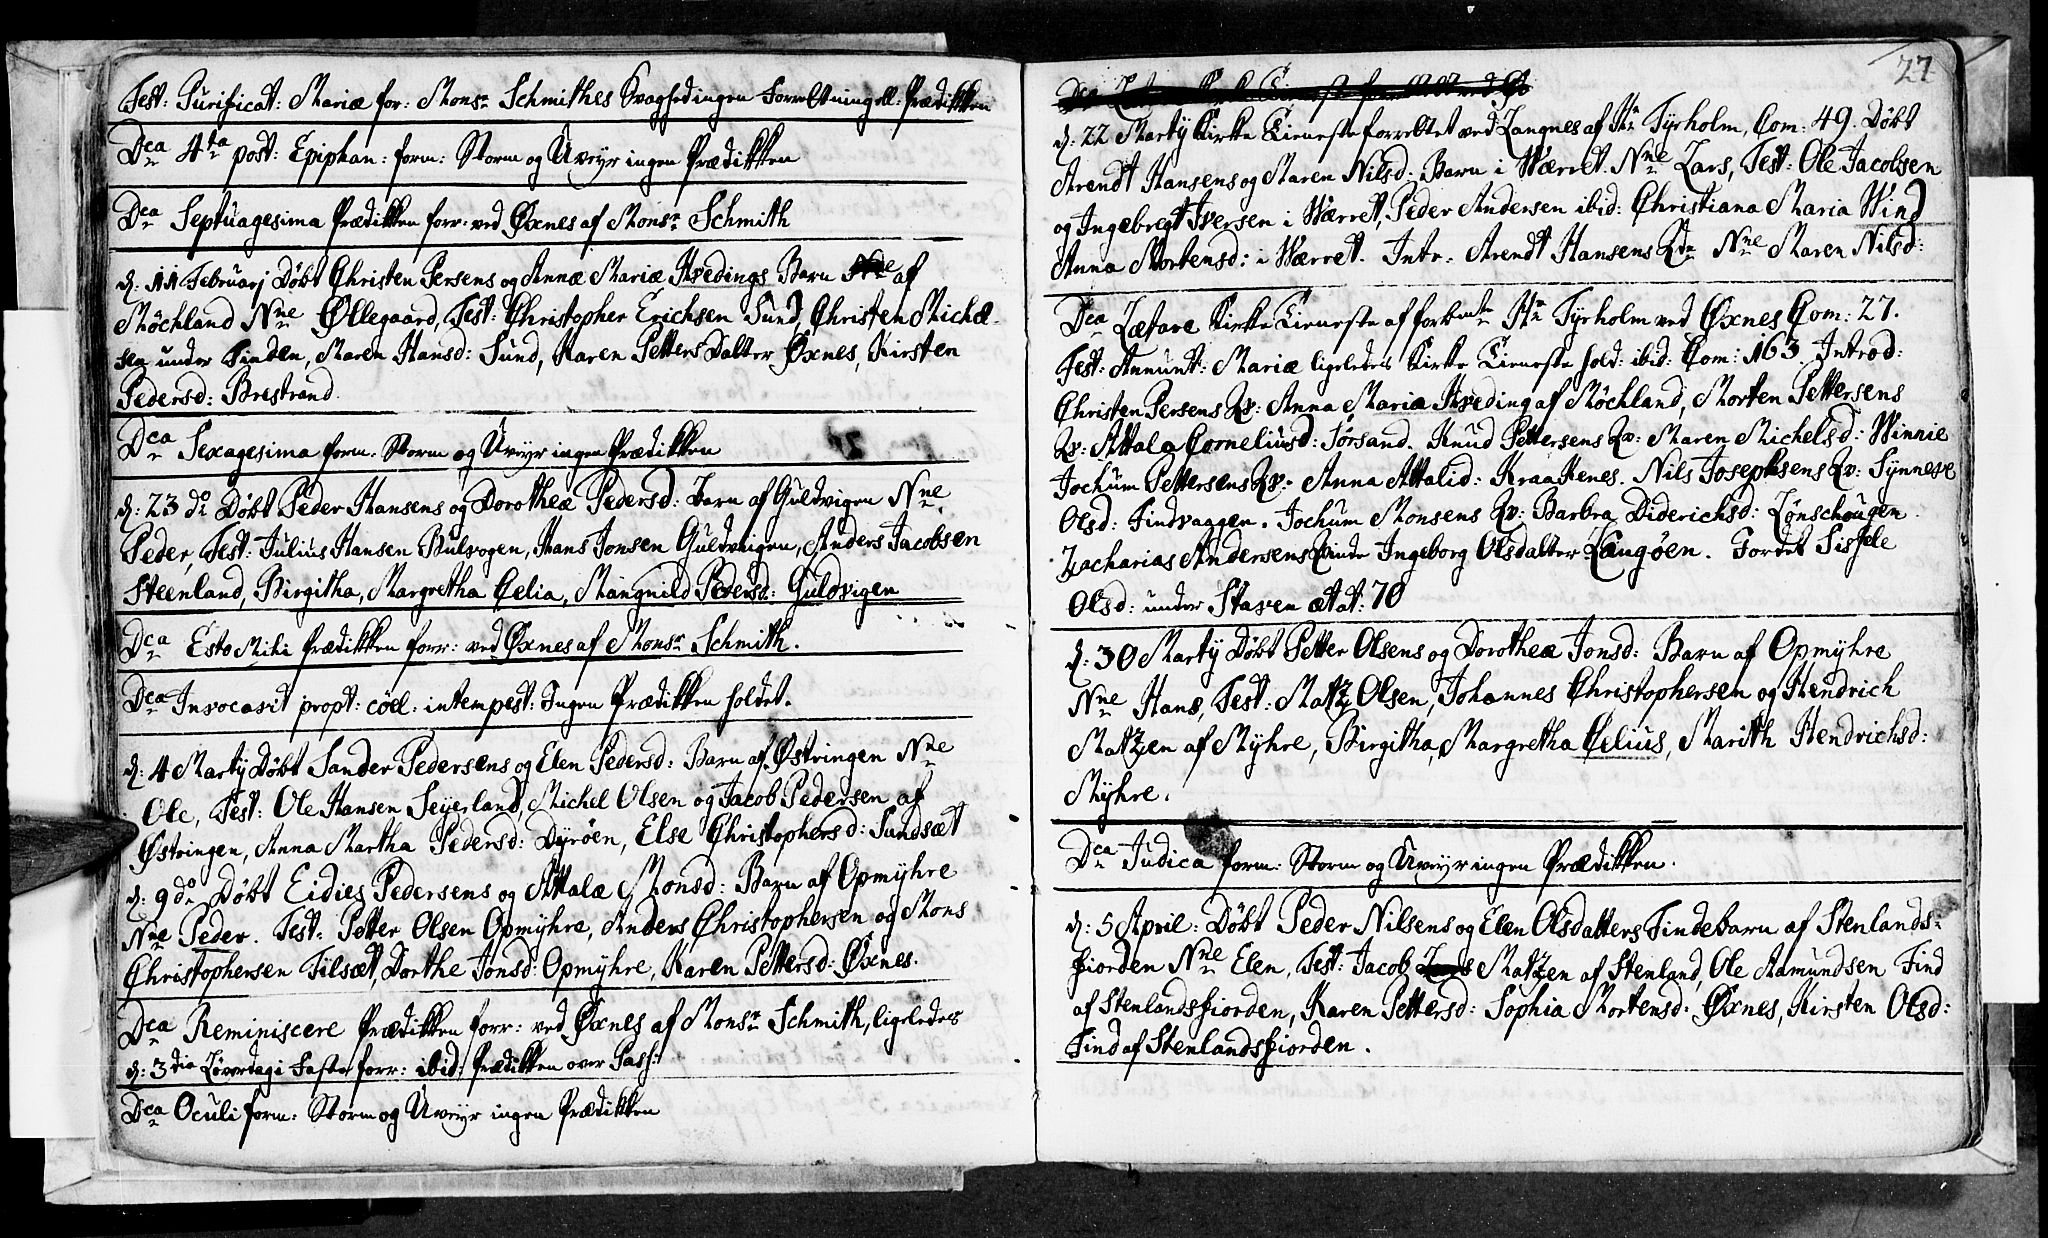 Fest: Purificat: Mariæ for: Monsr Schmithes Svaghed ingen Forretning ell: Prædikken
Dca 4ta post: Epiphan: form: Storm og Uveyr ingen Prædikken
Dca Septuagesima Prædikken forr: ved Øxnes af Monsr Schmith
d: 11 Februarj Døbt Christen Persens og Annæ Mariæ Hvedings Barn af
Möchland Nne Øllegaard, Test: Christopher Erichsen Sund, Christen Michel-
sen under Tinden, Maren Hansd: Sund, Karen Petters Datter Øxnes, Kirsten
Pedersd: Brestrand.
Dca Sexagesima form. Storm og Uveyr ingen Prædikken
d: 23 do Døbt Peder Hansens og Dorotheæ Pedersd: Barn af Guldvigen Nne
Peder, Test: Julius Hansen Bulvogen, Hans Jonsen Guldvigen, Anders Jacobsen
Steenland, Birgitha, Margretha Celia, Mangnild Pedersd: Guldvigen
Dca Esto Mihi Prædikken forr: ved Øxnes af Monsr Schmith.
Dca Invocavit propt: cöel: intempest: Ingen Prædikken holdet.
d: 4 Martÿ Døbt Sander Pedersens og Elen Pedersd: Barn af Østringen Nne
Ole, Test: Ole Hansen Seyerland, Michel Olsen og Jacob Pedersen af
Østringen, Anna Martha Pedersd: Dyrøen, Else Christophersd: Sundsæt
d: 9 do Døbt Eidies Pedersens og Attalæ Monsd: Barn af Opmÿhre
Nne Peder. Test: Petter Olsen Opmÿhre, Anders Christophersen og Mons
Christophersen Tilsæt, Dorthe Jonsd: Opmÿhre, Karen Pettersd: Øxnes.
Dca Reminiscere Prædikken forr: ved Øxnes af Monsr Schmith, ligeledes
d: 3dia Løverdag i Faste forr: ibid: Prædikken over Pass:
Dca Oculi form: Storm og Uveyr ingen Prædikken
27
d: 22 Martÿ Kirke Tieneste forrettet ved Langnes af Hr Tyrholm, Com: 49. Døbt
Arendt Hansens og Maren Nilsd: Barn i Wærret. Nne Lars, Test: Ole Jacobsen
og Ingebregt Iversen i Wærret, Peder Andersen ibid: Christiana Maria Wind
Anna Mortensd: i Wærret. Intr: Arendt Hansens Qve Nne Maren Nilsd:
Dca Lætare Kirke Tieneste af forbmte Hr Tyrholm ved Øxnes Com: 27.
Fest: Annunt: Mariæ ligeledes Kirke Tieneste hold: ibid: Com: 163 Introd:
Christen Persens Qv: Anna Maria Hveding af Möchland, Morten Pettersens
Qv: Attala Corneliusd: Sørsand. Knud Pettersens Qv: Maren Michelsd: Winnie
Jochum Pettersens Qv: Anna Attalid: Kraakenes. Nils Josephsens Qv: Sÿnneve
Olsd: Findvaggen. Jochum Monsens Qv: Barbra Diderichsd: Lønschougen
Zacharias Andersens Qvinde Ingeborg Olsdatter Langøen. Jordet Sissele
Olsd: under Staven ætat: 70
d: 30 Martÿ Døbt Petter Olsens og Dorotheæ Jonsd: Barn af Opmÿhre
Nne Hans, Test: Matz Olsen, Johannes Christophersen og Hendrich
Matzen af Mÿhre, Birgitha, Margretha Celius, Marith Hendrichsd:
Mÿhre.
Dca Judica form: Storm og Uveyr ingen Prædikken.
d: 5 April: Døbt Peder Nilsens og Elen Olsdatters Findebarn af Stenlands-
fiorden Nne Elen, Test: Jacob Matzen af Stenland, Ole Aamundsen Find
af Stenlandsfiorden, Karen Pettersd: Sophia Mortensd: Øxnes, Kirsten Olsd:
Find af Stenlandsfiorden.